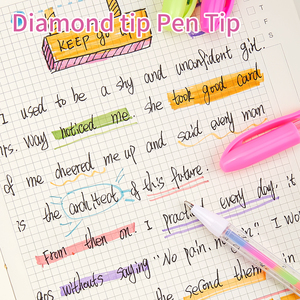 Diamond tip Pen Tip
KEEP
I used to be a shy and unconfident girl.
rs. Way noticed me. she took good card
of me cheered me up and said every man
is the architect of this future.
From then on I practi every day, it
"No pain, no I wo
gos without saying
the second them